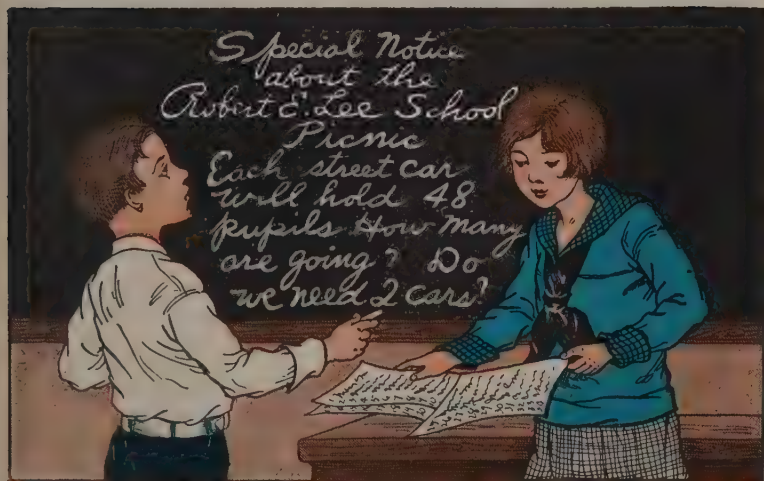 Special Notice
about the
Robert E. Lee School
Picnic
Each street car
will hold 48
pupils How many
are going? Do
we need 2 cars?